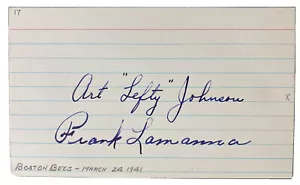 17
Art "Lefty" Johnson
X
Frank Lamanna
BOSTON BEES - MARCH 24 1941